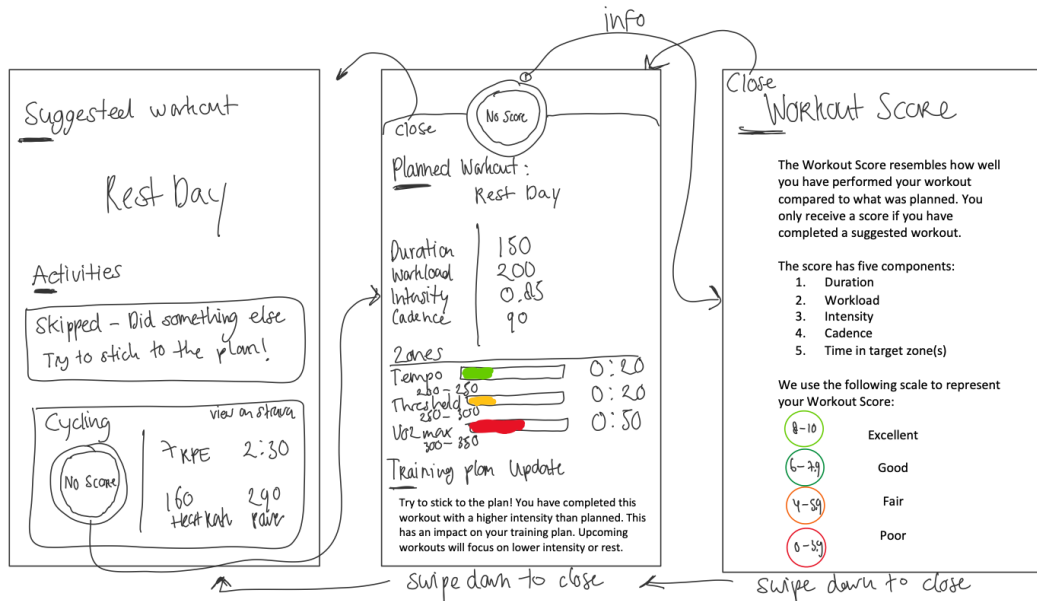 info
Suggested workout
Rest Day
Activities
Skipped - Did something else
Try to stick to the plan!
Cycling
view on strava
No Score
7 RPE 2:30
160 290
Heart Rate Power
No Score
close
Planned Workout:
Rest Day
Duration 150
Workload 200
Intensity 0.85
Cadence 90
Zones
Tempo 0:20
200-250
Threshold 0:20
250-300
VO2 max 0:50
300-350
Training plan Update
Try to stick to the plan! You have completed this
workout with a higher intensity than planned. This
has an impact on your training plan. Upcoming
workouts will focus on lower intensity or rest.
swipe down to close
Close
Workout Score
The Workout Score resembles how well
you have performed your workout
compared to what was planned. You
only receive a score if you have
completed a suggested workout.
The score has five components:
1. Duration
2. Workload
3. Intensity
4. Cadence
5. Time in target zone(s)
We use the following scale to represent
your Workout Score:
8-10 Excellent
6-7.9 Good
4-5.9 Fair
0-3.9 Poor
swipe down to close